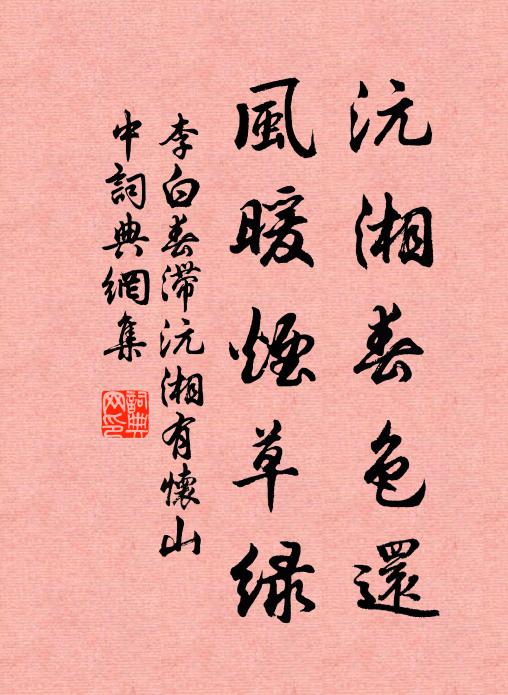 沅湘春色還
風暖煙草綠
李白春滯沅湘有懷山
中詞典網集
詞典
网印